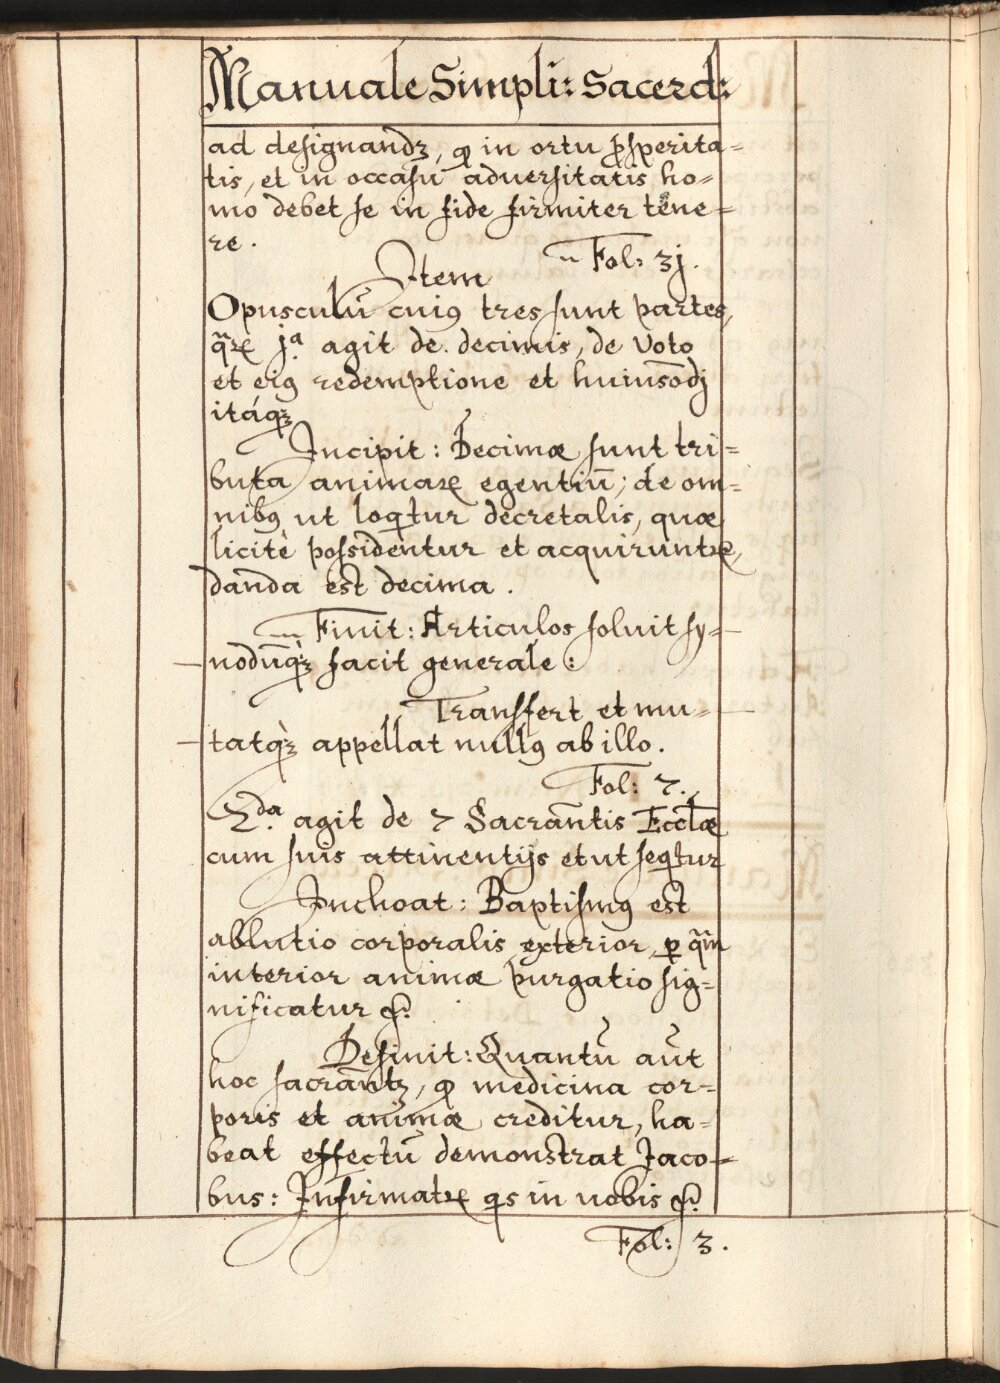 Manuale Simpli: Sacerd:
ad designandꝫ, ꝙ in ortu ꝓsperita=
tis, et in occasu adversitatis ho=
mo debet se in fide firmiter tene=
re.
Fol: 3j.
Item
Opusculū cuiꝰ tres sunt partes,
q̄rꝝ j.ª agit de decimis, de Voto
et eiꝰ redemptione et huiusōdj
itáqꝫ
Incipit: Decimæ sunt tri=
buta animaꝝ egentiū; de om=
nibꝰ ut loqtur decretalis, quæ
licitè possidentur et acquiruntꝝ,
danda est decima.
Finit: Articulos soluit sy=
nodūqꝫ facit generale:
Transfert et mu=
tatqꝫ appellat nullꝰ ab illo.
Fol: 7.
2.da agit de 7 Sacrāntis Eccl̄æ
cum suis attinentijs et ut seqtur
Inchoat: Baptismꝰ est
ablutio corporalis exterior, ꝑ q̄m
interior animæ purgatio sig=
nificatur
Desinit: Quantū aūt
hoc sacrāntꝫ, ꝙ medicina cor=
poris et animæ creditur, ha=
beat effectū demonstrat Jaco=
bus: Infirmatꝝ qs in uobis
Fol: 3.